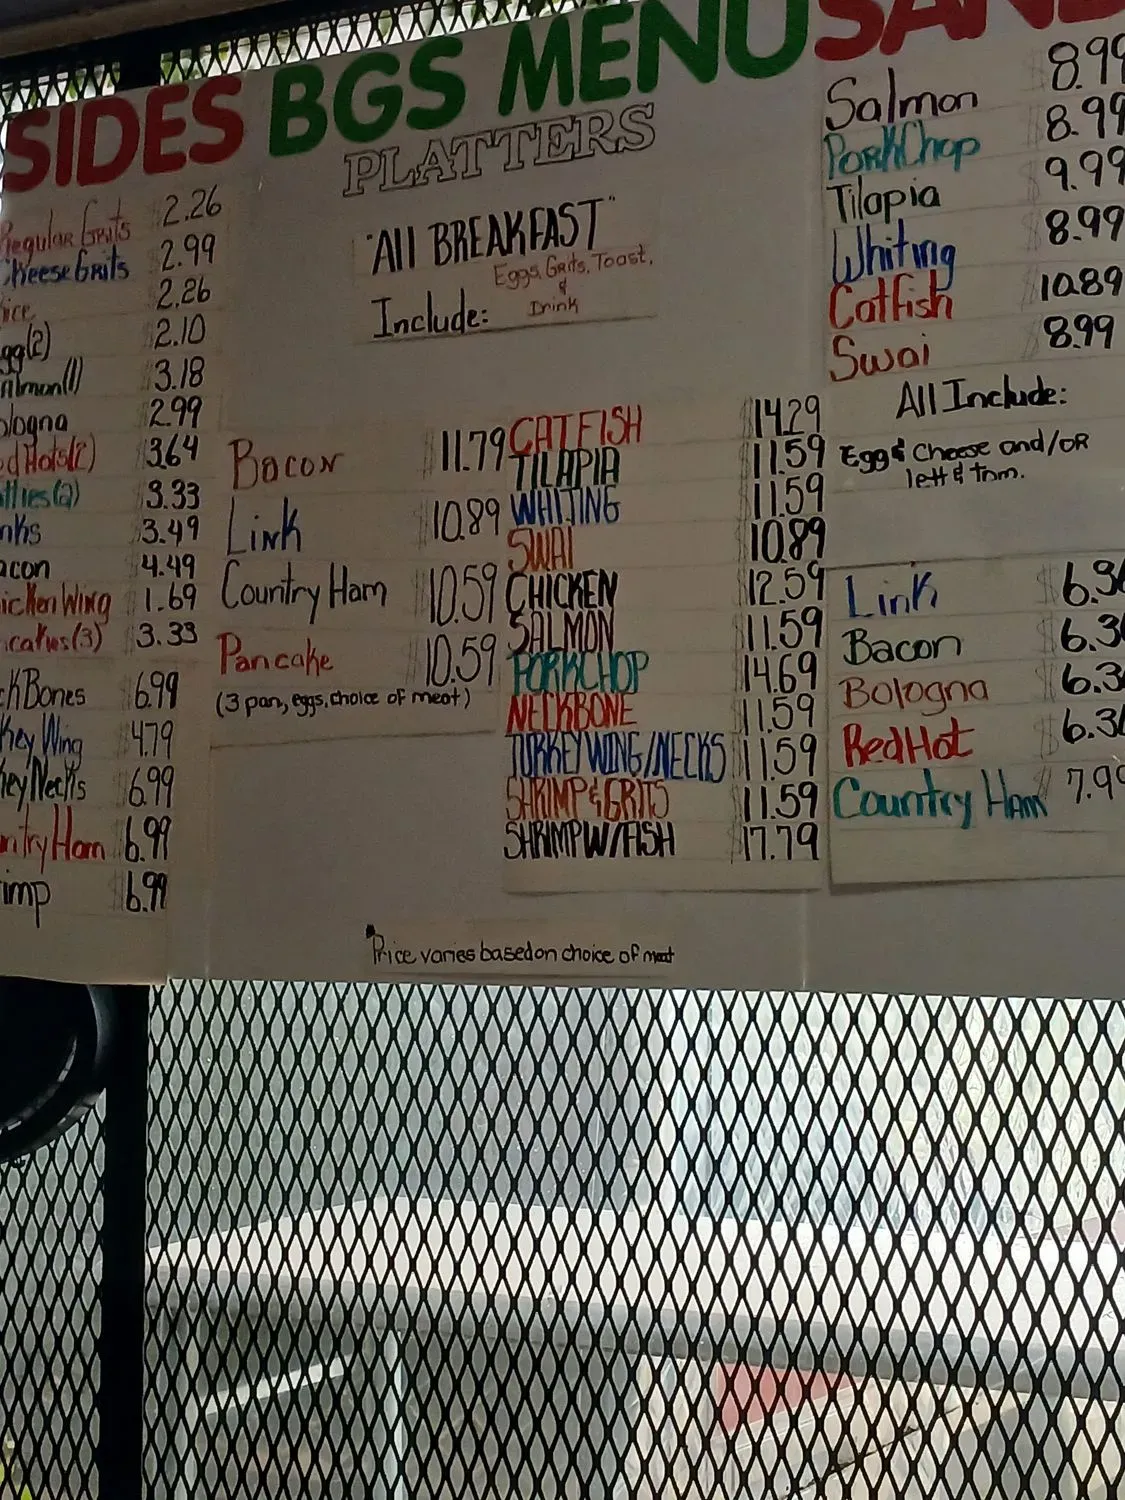 SIDES
Regular Grits 2.26
Cheese Grits 2.99
ice 2.26
gg(2) 2.10
almon(1) 3.18
ologna 2.99
edHots(2) 3.64
tties(2) 3.33
nks 3.49
acon 4.49
icken Wing 1.69
ncakes(3) 3.33
ckBones 6.99
key Wing 4.79
key Necks 6.99
untry Ham 6.99
imp 6.99
BGS MENU
PLATTERS
"All BREAKFAST"
Include: Eggs, Grits, Toast,
&
Drink
Bacon $11.79
Link $10.89
Country Ham $10.59
Pancake $10.59
(3 pan, eggs, choice of meat)
CATFISH $14.29
TILAPIA $11.59
WHITING $11.59
SWAI $10.89
CHICKEN $12.59
SALMON $11.59
PORKCHOP $14.69
NECKBONE $11.59
TURKEY WING/NECKS $11.59
SHRIMP & GRITS $11.59
SHRIMP W/FISH $17.79
*Price varies based on choice of meat
SAND
Salmon $8.99
PorkChop $8.99
Tilapia 9.99
Whiting $8.99
Catfish $10.89
Swai $8.99
All Include:
Egg & Cheese and/OR
lett & tom.
Link $6.36
Bacon $6.3
Bologna $6.3
RedHot $6.36
Country Ham $7.99